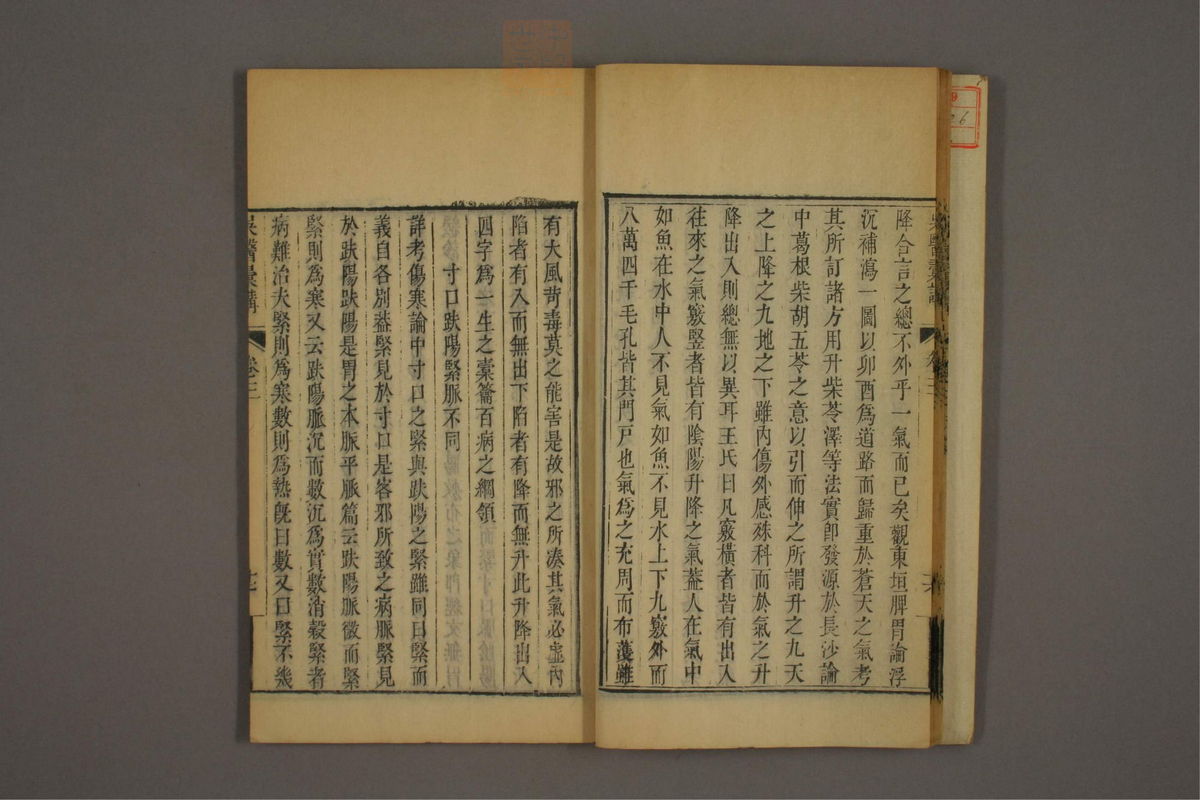 降合言之總不外乎一氣而已矣觀東垣脾胃論浮
沉補瀉一圖以卯酉爲道路而歸重於蒼天之氣考
其所訂諸方用升柴苓澤等法實卽發源於長沙論
中葛根柴胡五苓之意以引而伸之所謂升之九天
之上降之九地之下雖內傷外感殊科而於氣之升
降出入則總無以異耳王氏曰凡竅橫者皆有出入
往來之氣竅竪者皆有陰陽升降之氣蓋人在氣中
如魚在水中人不見氣如魚不見水上下九竅外而
八萬四千毛孔皆其門戸也氣爲之充周而布濩雖
有大風苛毒莫之能害是故邪之所湊其氣必虛內
陷者有入而無出下陷者有降而無升此升降出入
四字爲一生之橐籥百病之綱領
寸口趺陽緊脈不同
詳考傷寒論中寸口之緊與趺陽之緊雖同曰緊而
義自各別蓋緊見於寸口是客邪所致之病脈緊見
於趺陽趺陽是胃之本脈平脈篇云趺陽脈微而緊
緊則爲寒又云趺陽脈沉而數沉爲實數消穀緊者
病難治夫緊則爲寒數則爲熱旣曰數又曰緊不幾
吳醫彙講
卷三